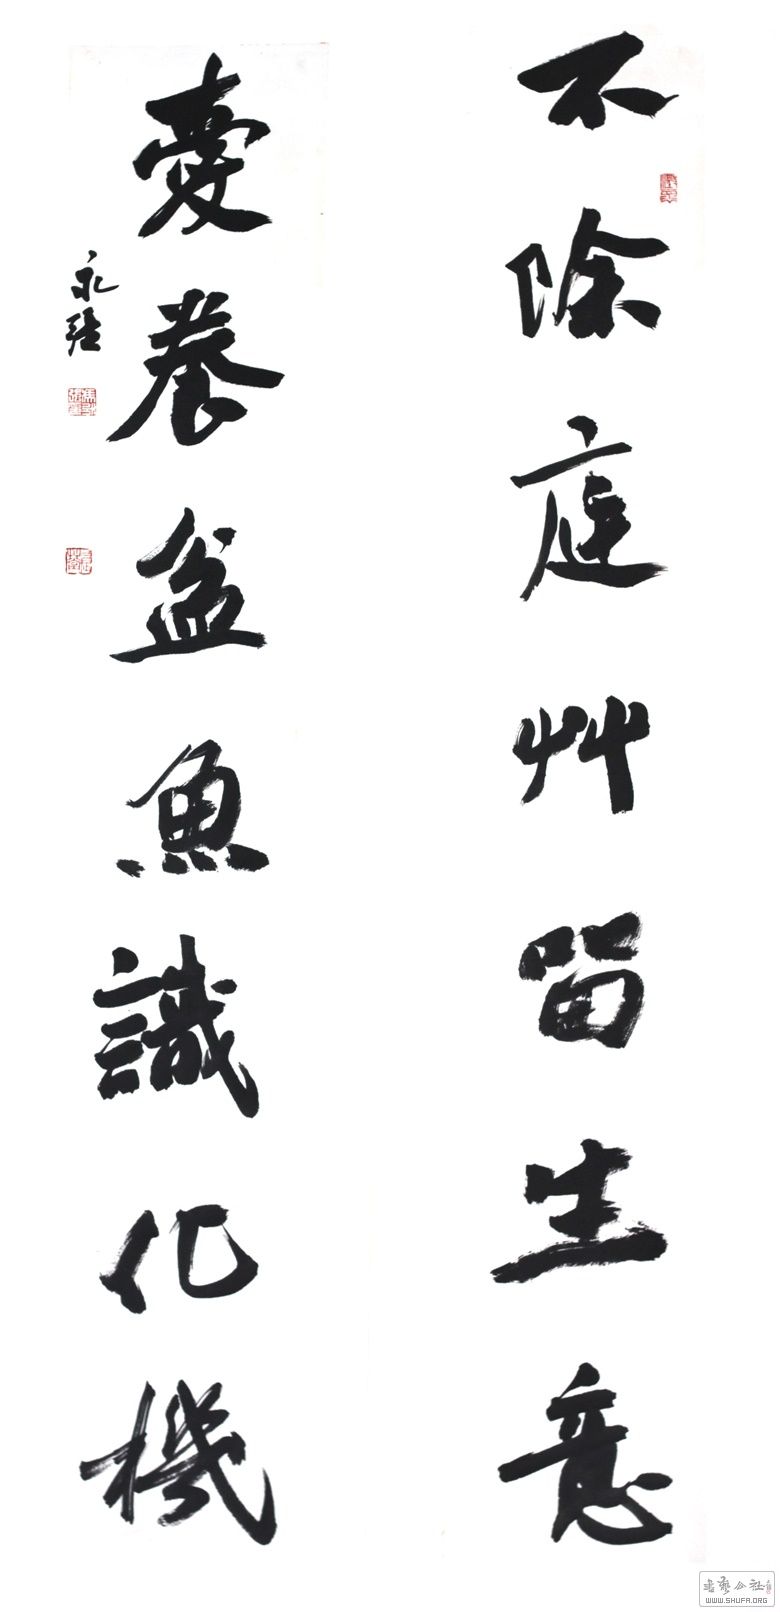 不除庭艸留生意
愛養盆魚識化機
永
書藝公社
WWW.SHUFA.ORG